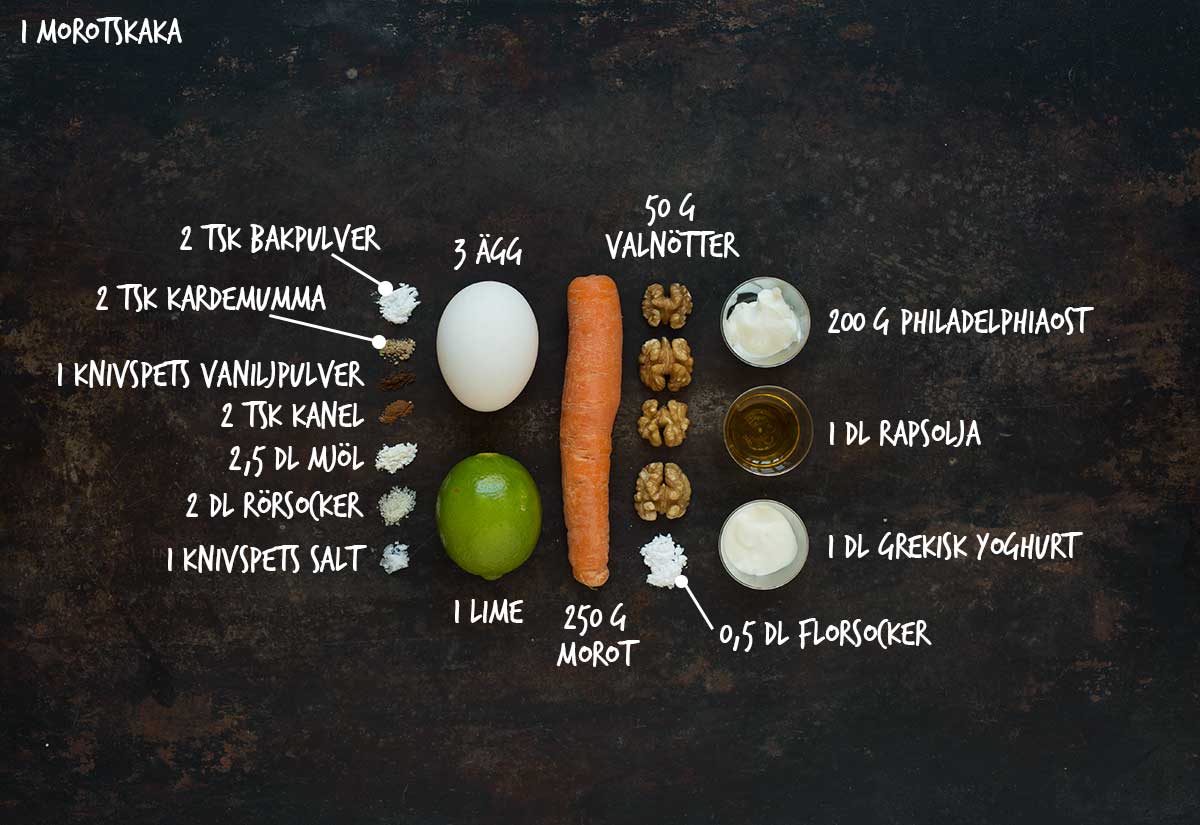 1 MOROTSKAKA
2 TSK BAKPULVER
2 TSK KARDEMUMMA
1 KNIVSPETS VANILJPULVER
2 TSK KANEL
2,5 DL MJÖL
2 DL RÖRSOCKER
1 KNIVSPETS SALT
3 ÄGG
1 LIME
250 G
MOROT
50 G
VALNÖTTER
0,5 DL FLORSOCKER
200 G PHILADELPHIAOST
1 DL RAPSOLJA
1 DL GREKISK YOGHURT